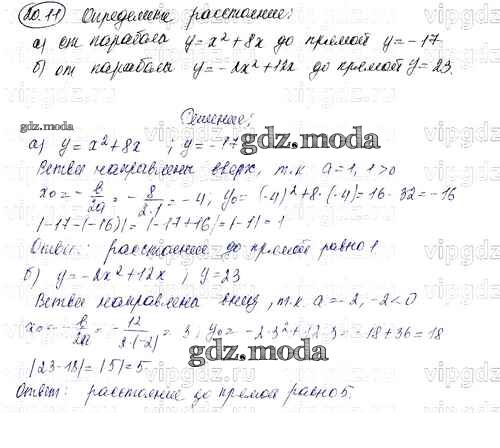 20.11 Определите расстояние:
а) от параболы y = x² + 8x до прямой y = -17
б) от параболы y = -2x² + 12x до прямой y = 23.
Решение:
gdz.moda
а) y = x² + 8x ; y = -17
Ветви направлены вверх, т.к a = 1, 1 > 0
x₀ = -b/2a = -8/2·1 = -4, y₀ = (-4)² + 8·(-4) = 16 - 32 = -16
|-17-(-16)| = |-17+16| = |-1| = 1
Ответ: расстояние до прямой равно 1
б) y = -2x² + 12x ; y = 23
Ветви направлены вниз, т.к. a = -2, -2 < 0
x₀ = -b/2a = -12/2·(-2) = 3, y₀ = -2·3² + 12·3 = -18 + 36 = 18
|23-18| = |5| = 5
Ответ: расстояние до прямой равно 5.